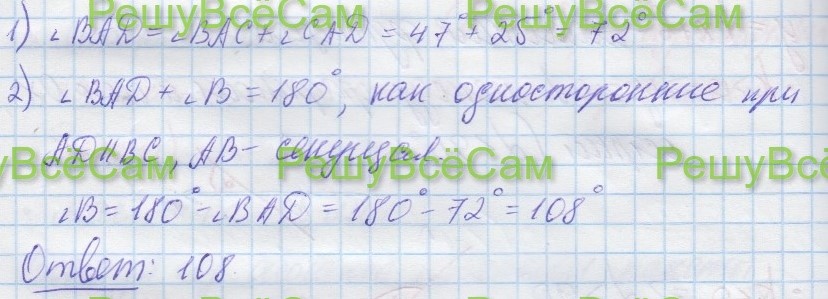 РешуВсёСам РешуВсёСам
1) ∠BAD = ∠BAC + ∠CAD = 47° + 25° = 72°
2) ∠BAD + ∠B = 180°, как односторонние при
AD∥BC, AB – секущая.
уВсёСам РешуВсёСам РешуВсё
∠B = 180° – ∠BAD = 180° – 72° = 108°
Ответ: 108.